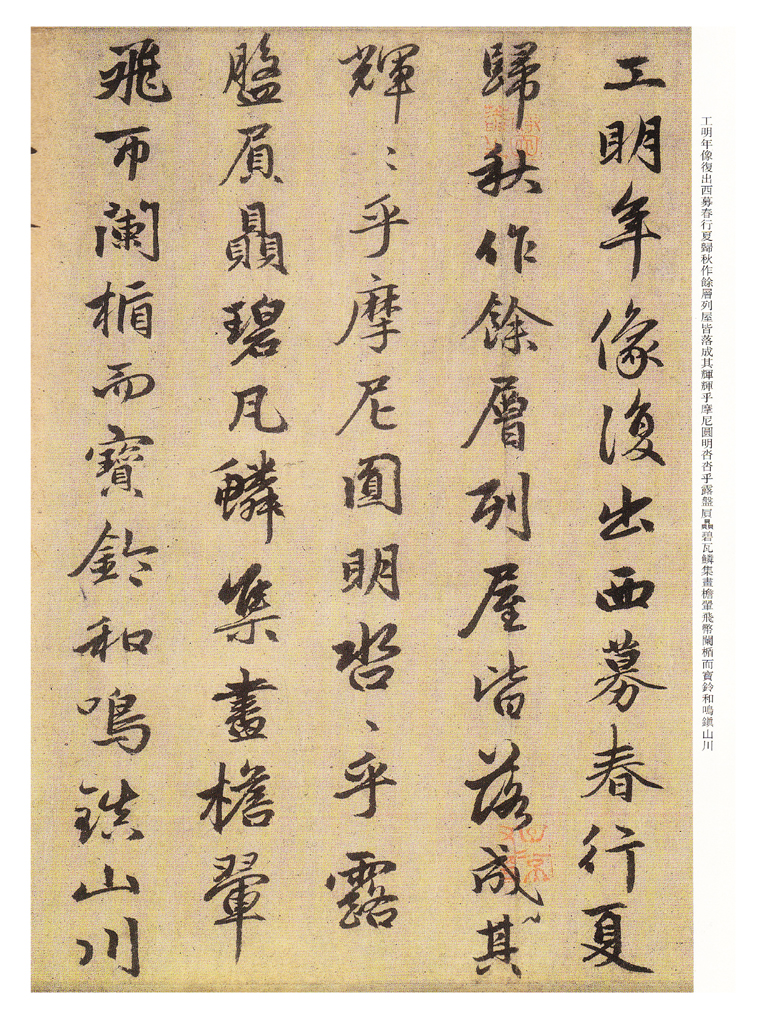 工明年像復出西募春行夏歸秋作餘層列屋皆落成其輝輝乎摩尼圓明沓沓乎露盤屓贔碧瓦鱗集畫檐翬飛帀闌楯而寶鈴和鳴鎮山川
工明年像復出西募春行夏
歸秋作餘層列屋皆落成其
輝〻乎摩尼圓明沓〻乎露
盤屓贔碧瓦鱗集畫檐翬
飛帀闌楯而寶鈴和鳴鎮山川